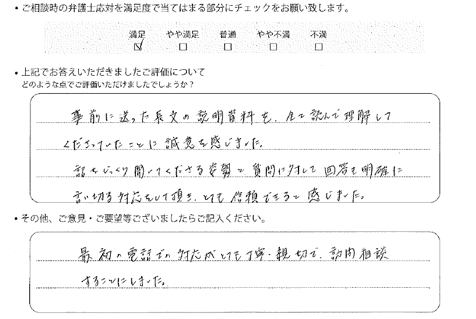 • ご相談時の弁護士応対を満足度で当てはまる部分にチェックをお願い致します。
満足 やや満足 普通 やや不満 不満
• 上記でお答えいただきましたご評価について
どのような点でご評価いただけましたでしょうか？
事前に送った長文の説明資料を、全て読んで理解して
くださっていたことに誠意を感じました。
話をじっくり聞いてくださる姿勢と質問に対して回答を明確に
言い切る対応をして頂き、とても信頼できると感じました。
• その他、ご意見・ご要望等ございましたらご記入ください。
最初の電話での対応がとても丁寧・親切で、訪問相談
することにしました。